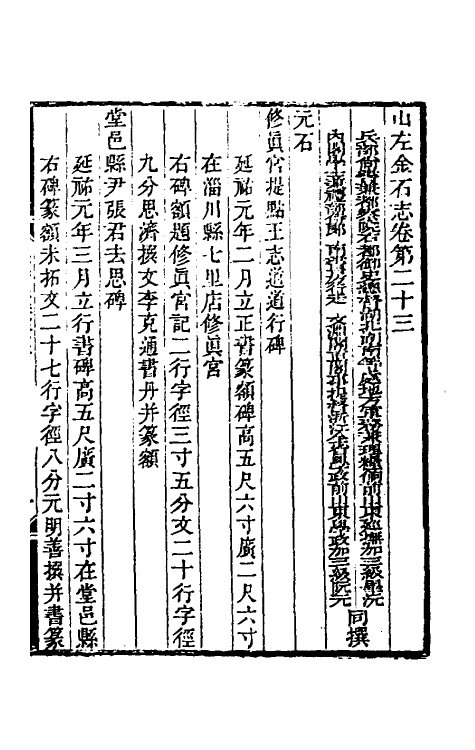 山左金石志卷第二十三
兵部尙書兼都察院右都御史總督湖北湖南等處地方軍務兼理糧餉前山東巡撫加三級畢沅
內閣學士兼禮部侍郎 南書房行走 文淵閣直閣事提督浙江全省學政前山東學政加三級阮元
同撰
元石
修眞宮提點王志道道行碑
延祐元年二月立正書篆額碑高五尺六寸廣二尺六寸
在淄川縣七里店修眞宮
右碑額題修眞宮記二行字徑三寸五分文二十行字徑
九分思濟撰文李克通書丹并篆額
堂邑縣尹張君去思碑
延祐元年三月立行書碑高五尺廣二寸六寸在堂邑縣
右碑篆額未拓文二十七行字徑八分元明善撰并書篆